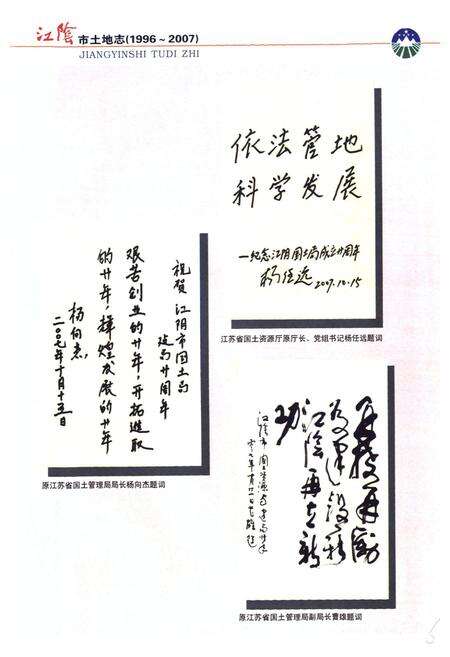 江阴市土地志(1996~2007)
JIANGYINSHI TUDI ZHI
依法管地
科学发展
—纪念江阴国土局成立廿周年
杨任远
2007.10.15
江苏省国土资源厅原厅长、党组书记杨任远题词
祝贺江阴市国土局
建局廿周年
艰苦创业的廿年,开拓进取
的廿年,辉煌发展的廿年
杨向杰
二〇〇七年十月十五日
原江苏省国土管理局局长杨向杰题词
再接再励
为建设新
江阴再立新
功
原江苏省国土管理局副局长曹雄题词